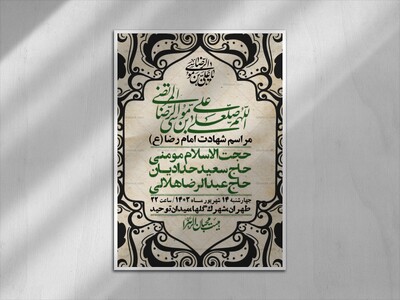 یا علی بن موسی الرضا
اللهم صل علی علی بن موسی الرضا المرتضی
مراسم شهادت امام رضا (ع)
حجت الاسلام مومنی
حاج سعید حدادیان
حاج عبدالرضا هلالی
چهارشنبه ۱۴ شهریور ماه ۱۴۰۳ / ساعت ۲۲
طهران، شهرک گلها، میدان توحید